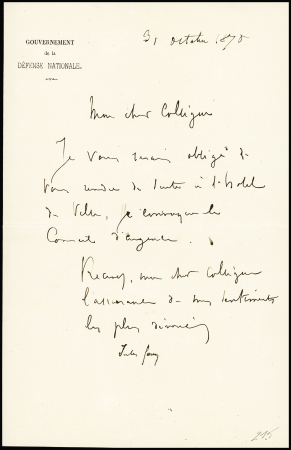 GOUVERNEMENT
de la
DÉFENSE NATIONALE.
31 octobre 1870
Mon cher Collègue
Je vous serais obligé de
vous rendre de suite à l'hotel
de Ville, je convoque le
Conseil d'urgence.
Recevez, mon cher Collègue
l'assurance de mes sentiments
les plus dévoués
Jules Ferry
215